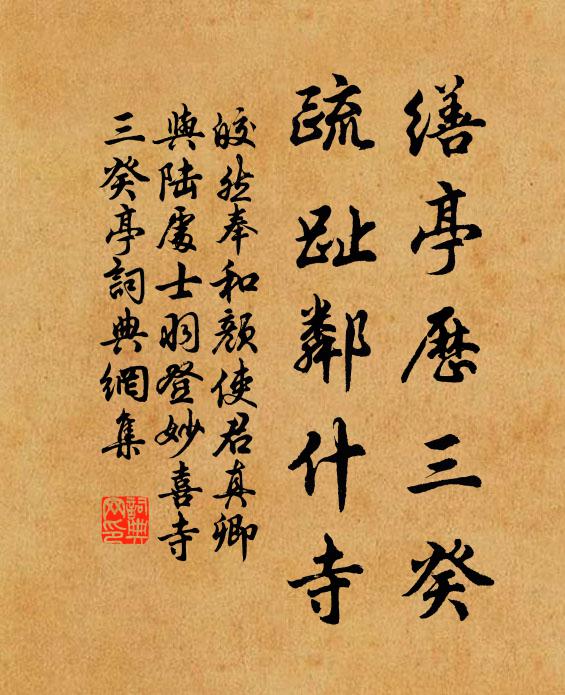 繕亭歷三癸
疏趾鄰什寺
皎然奉和顏使君真卿
與陸處士羽登妙喜寺
三癸亭詞典網集
詞典
网印